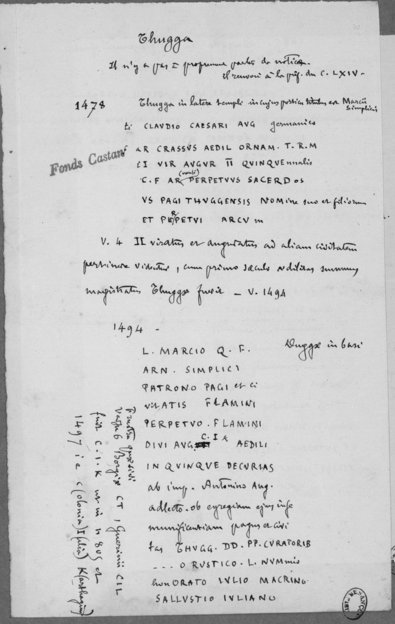 Thugga
Il n'y a pas à proprement parler de notice.
Il renvoie à la préf. du C. LXIV -
1478 Thugga in latere templi in cujus porticu titulus est Marcii Simplicis
ti CLAUDIO CAESARI AUG germanico
AR CRASSUS AEDIL ORNAM. T. R. M
CI VIR AUGUR II QUINQUEnnalis
C. F AR(nensi) PERPETUUS SACERDos
US PAGI THUGGENSIS NOMine suo et filiorum
ET PERPETUI ARCUm
Fonds Castan
V. 4 II viratus et auguratus ad aliam civitatem
pertinere videtur, cum primo saeculo aedilitas summus
magistratus Thuggae fuerit - V. 1494
1494 -
Duggæ in basi
L. MARCIO Q. F.
ARN. SIMPLICI
PATRONO PAGI et ci
vitATIS FLAMINI
PERPETUO. FLAMINI
DIVI AUG. C.I.K AEDILI
IN QUINQUE DECURIAS
ab imp. Antonino Aug.
adlecto. ob egregiam ejus in se
munificentiam pagus et civi
tas THUGG. DD. PP. CURATORIB
- - - O RUSTICO. L. NUMMIO
honORATO IULIO MACRINO
SALLUSTIO IULIANO
V. 6 CT, Guerinii CIL
fuit C. I. K ut in n 805 et
1497 i e C(olonia) I(ulia) K(arthago)